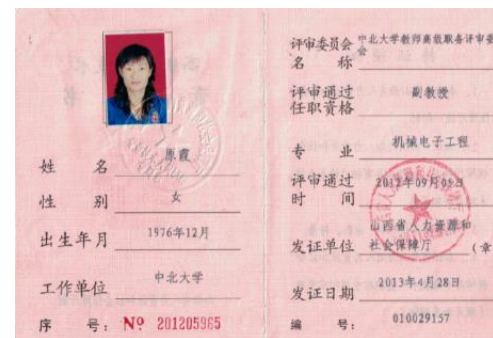 姓 名 原霞
性 别 女
出生年月 1976年12月
工作单位 中北大学
序 号: Nº 201205965
评审委员会 中北大学教师高级职务评审委
名 称 会
评审通过
任职资格 副教授
专 业 机械电子工程
评审通过
时 间 2012年09月05日
山西省人力资源和
发证单位 社会保障厅 (章
发证日期 2013年4月28日
编 号: 010029157